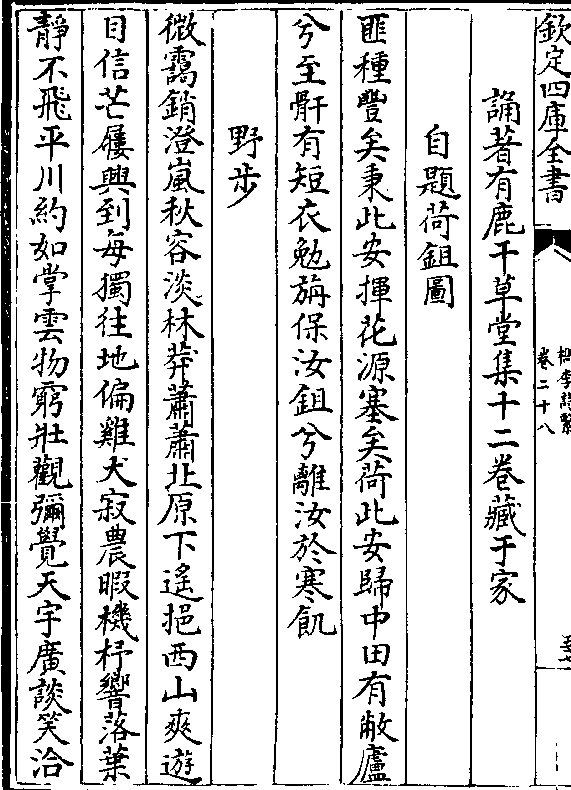 欽定四庫全書
卷二十八
誦著有鹿干草堂集十二卷藏于家
自題荷鉏圖
匪種豐矣秉此安揮花源塞矣荷此安歸中田有敝廬
兮至骭有短衣勉旃保汝鉏兮離汝於寒飢
野步
微靄銷澄嵐秋容淡林莽蕭蕭北原下遙挹西山爽遊
目信芒屨興到每獨往地偏雞犬寂農暇機杼響落葉
靜不飛平川約如掌雲物窮壯觀彌覺天宇廣談笑洽